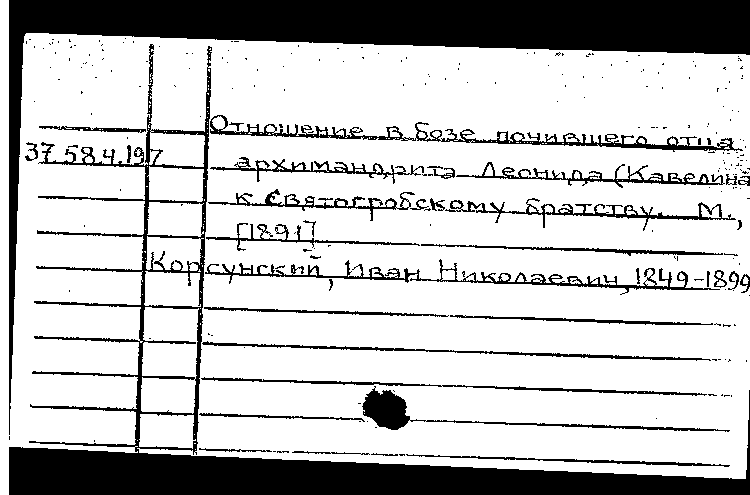 Отношение в бозе почившего отца
37 58.4.197
архимандрита Леонида (Кавелина
к Святогробскому братству. М.,
[1891]
Корсунский, Иван Николаевич, 1849-1899